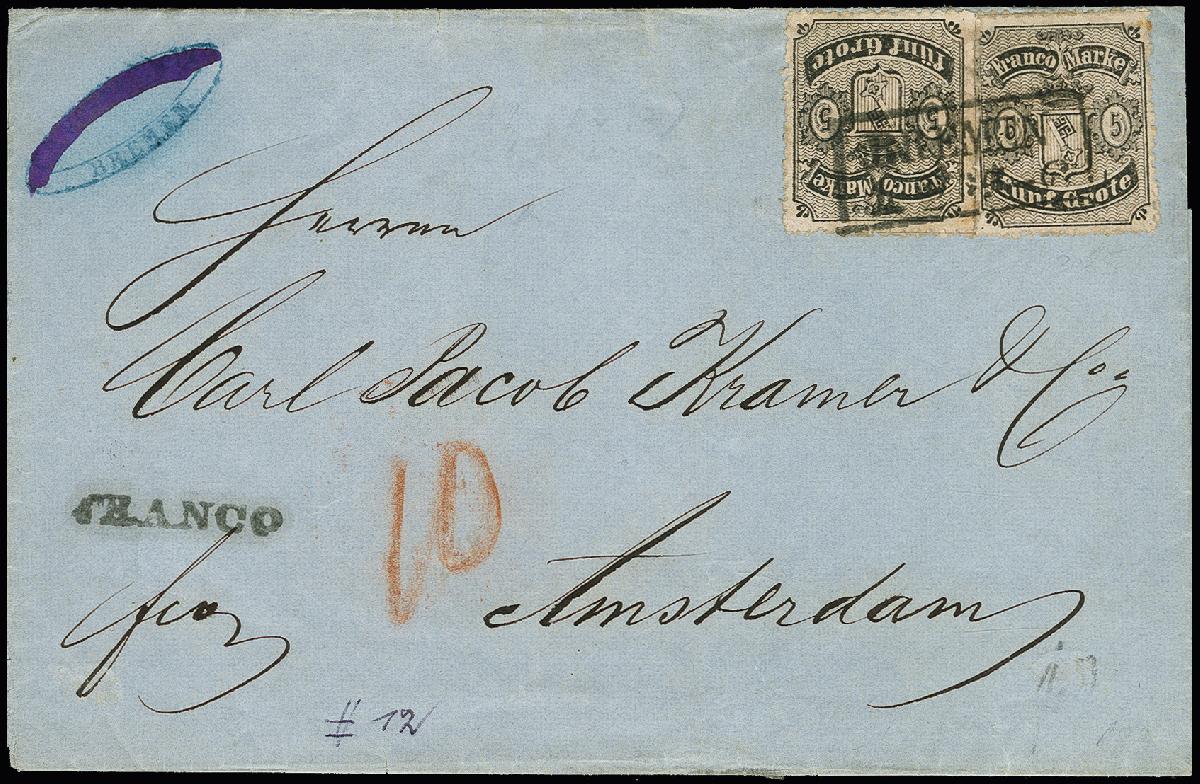 BREMEN
fünf Grote
5 5
Franco Marke
Franco Marke
5 5
fünf Grote
BREMEN
Herren
Carl Jacob Kramer & Co.
10
FRANCO
frco
Amsterdam
# 12